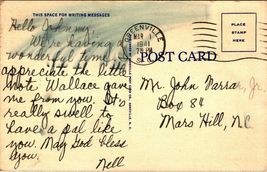 THIS SPACE FOR WRITING MESSAGES
Hello Johnny:
We're having a
wonderful time. I
appreciate the little
note Wallace gave
me from you. It's
really swell to
have a pal like
you. May God bless
you.
Nell
GREENVILLE
MAR
1941
PLACE
STAMP
HERE
POST CARD
Mr. John Farrar, Jr.
Box 84
Mars Hill, N.C.